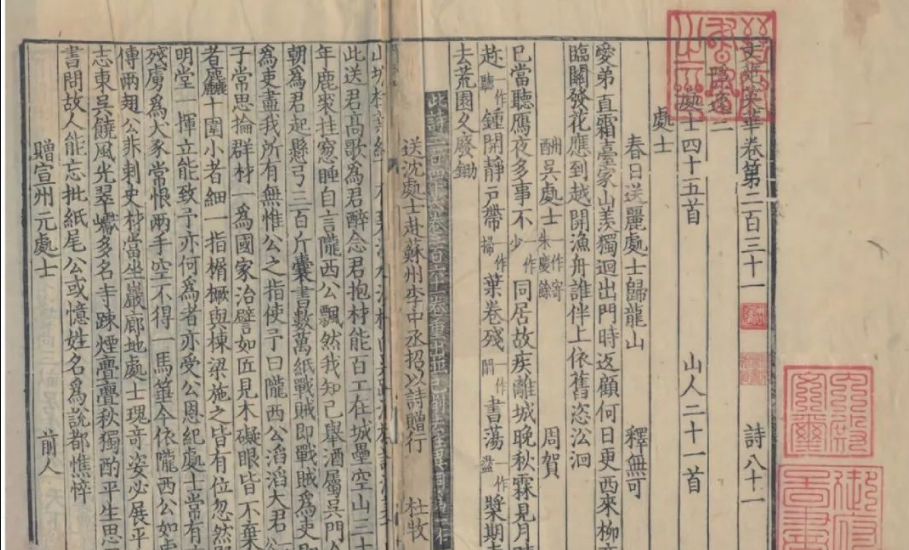 文苑英華卷第二百三十一 詩八十一
隱逸二
士四十五首 山人二十一首
處士
春日送麗處士歸龍山 釋無可
愛弟直霜臺家山羨獨迴出門時返顧何日更西來柳
臨關發花應到越開漁舟誰伴上依舊恣沿洄
酬吳處士一作寄朱慶餘 周賀
已當聽鴈夜多事不少一作同居故疾離城晚秋霖見月時
赴聽一作鍾開靜戶帶揚一作葉卷殘間一作書蕩盪一作槳期
去荒園久廢鋤
此詩二百六十卷重出
送沈處士赴蘇州李中丞招以詩贈行 杜牧
山城
此送君高歌爲君醉念君抱材能百工在城壘空山三十
年鹿裘挂窓睡自言隴西公飄然我知己舉酒屬吳門今
朝爲君起懸弓三百斤囊書數萬紙戰賊即戰賊爲吏即
爲吏盡我所有無惟公之指使予曰隴西公滔滔大君
子常思掄群材一爲國家治譬如匠見木礙眼皆不棄
者麤十圍小者細一指楣橛與棟梁施之皆有位忽然
明堂一揮立能致予亦何爲者亦受公恩紀處士常有
殘虜爲大豕常恨兩手空不得一馬箠今依隴西公如
傳兩翅公非刺史材當坐巖廊地處士瑰奇姿必展平
志東吳饒風光翠巘多名寺踈煙亹亹秋獨酌平生思
書問故人能忘批紙尾公或憶姓名爲說都憔悴
贈宣州元處士 前人